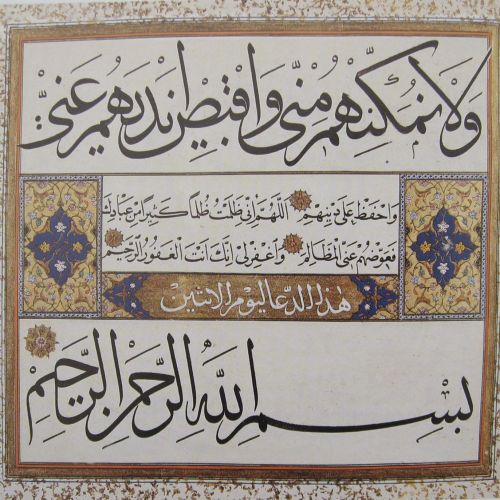 وَلَا تُمَكِّنْهُمْ مِنِّي وَاقْبِضْ أَيْدِيَهُمْ عَنِّي
وَاحْفَظْ عَلَى دِينِهِمْ اللَّهُمَّ إِنِّي ظَلَمْتُ ظُلْمًا كَثِيرًا مِنْ عِبَادِكَ
فَعَوِّضْهُمْ عَنِّي الْمَظَالِمَ وَاغْفِرْ لِي إِنَّكَ أَنْتَ الْغَفُورُ الرَّحِيمُ
هذا الدعا ليوم الاثنين
بِسْمِ اللَّهِ الرَّحْمَنِ الرَّحِيمِ